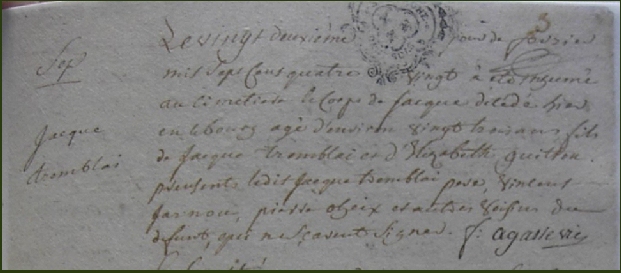 3
Sep
Jacque
tremblai
Le vingt deuxième jour de
mil sept cens quatre vingt à été inhumé
au cimetiere le corps de Jacque décédé hier
en le bourg agé d'environ vingt trois ans fils
de Jacque tremblai et d'Elizabeth quitton.
presents ledit Jacque tremblai pere, vincent
Jarnou, pierre et autres du
defunt, qui ne sçavent signer. f: agasseries